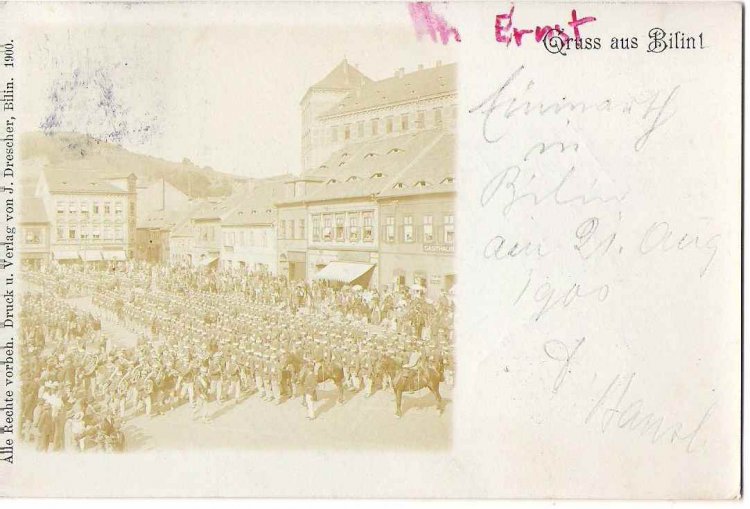 An Ernst
Gruss aus Bilin!
Einmarsch
in
Bilin
am 21. Aug
1900
Hansl
GASTHAUS
Alle Rechte vorbeh. Druck u. Verlag von J. Drescher, Bilin. 1900.